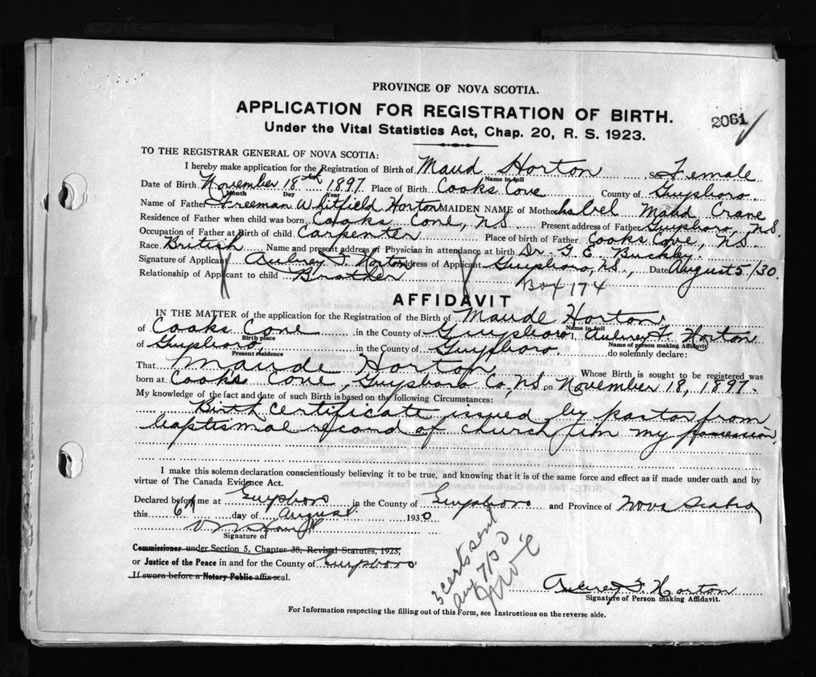 PROVINCE OF NOVA SCOTIA.
APPLICATION FOR REGISTRATION OF BIRTH.
2061
Under the Vital Statistics Act, Chap. 20, R. S. 1923.
TO THE REGISTRAR GENERAL OF NOVA SCOTIA:
I hereby make application for the Registration of Birth of Maud Horton Female
Name in full
Date of Birth November 18th 1897 Place of Birth Cooks Cove County of Guysboro
Month Day Year
Name of Father Freeman Whitfield Horton MAIDEN NAME of Mother Maud Crane
Residence of Father when child was born Cooks Cove, N.S. Present address of Father Guysboro, N.S.
Occupation of Father at Birth of child Carpenter Place of birth of Father Cooks Cove, N.S.
Race British Name and present address of Physician in attendance at birth Dr. G. E. Buckley.
Signature of Applicant Aubrey F. Horton Address of Applicant Guysboro, N.S., Date August 5/30.
Relationship of Applicant to child Brother Box 174
AFFIDAVIT
IN THE MATTER of the application for the Registration of the Birth of Maude Horton
Name in full
of Cooks Cove in the County of Guysboro, Aubrey F. Horton
Birth place Name of person making Affidavit
of Guysboro in the County of Guysboro do solemnly declare:
Present residence
That Maude Horton Whose Birth is sought to be registered was
born at Cooks Cove, Guysboro Co, N.S. on November 18, 1897.
My knowledge of the fact and date of such Birth is based on the following Circumstances:
Birth certificate issued by pastor from
baptismal record of church in my possession
I make this solemn declaration conscientiously believing it to be true, and knowing that it is of the same force and effect as if made under oath and by
virtue of The Canada Evidence Act.
Declared before me at Guysboro in the County of Guysboro and Province of Nova Scotia
this 6th day of August 1930
Signature of
Commissioner under Section 5, Chapter 38, Revised Statutes, 1923,
or Justice of the Peace in and for the County of Guysboro
If sworn before a Notary Public affix seal.
3 certs sent
Aug 7/30
Aubrey F. Horton
Signature of Person making Affidavit.
For Information respecting the filling out of this Form, see Instructions on the reverse side.